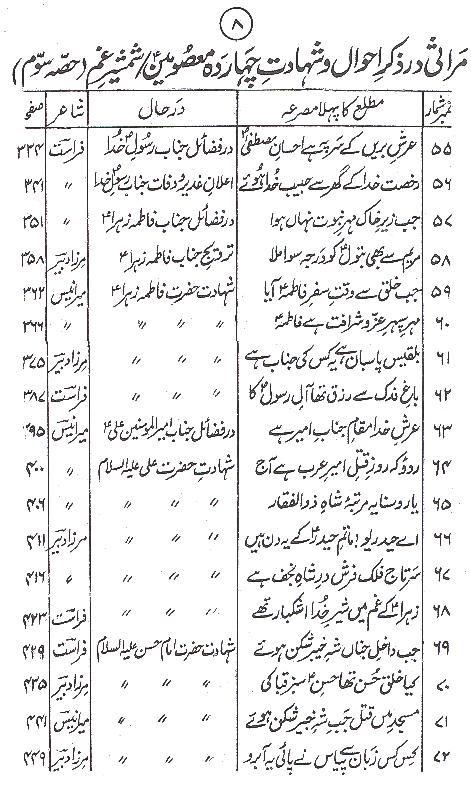 ۸
مراثی در ذکرِ احوال و شہادتِ چہاردہ معصومینؑ/شمشیرِ غم (حصّہ سوّم)
نمبر شمار مطلع کا پہلا مصرعہ در حال شاعر صفحہ
۵۵ عرشِ بریں کے سر پہ ہے احسانِ مصطفیٰؐ در فضائل جناب رسولِؐ خدا فراستؔ ۳۳۴
۵۶ رخصت خدا کے گھر سے حبیبِ خدا ہوئے اعلانِ غدیر و وفات جناب رسولؐ خدا ” ۳۴۱
۵۷ جب زیرِ خاک مہرِ نبوت نہاں ہوا در فضائل جناب فاطمہ زہراؑ ” ۳۵۱
۵۸ مریم سے بھی بتولؑ کو درجہ سوا ملا تزویج جناب فاطمہ زہراؑ مرزا دبیرؔ ۳۵۸
۵۹ جب خلق سے وقتِ سفرِ فاطمہؑ آیا شہادت حضرت فاطمہ زہراؑ میر انیسؔ ۳۶۲
۶۰ مہرِ سپہرِ عز و شرافت ہے فاطمہؑ ” ” ” ” ۳۶۶
۶۱ بلقیس پاسباں ہے یہ کس کی جناب ہے ” ” ” مرزا دبیرؔ ۳۷۵
۶۲ باغِ فدک سے رزق تھا آلِ رسولؐ کا ” ” ” فراستؔ ۳۸۷
۶۳ عرشِ خدا مقامِ جنابِ امیر ہے در فضائل جناب امیرالمومنین علیؑ میر انیسؔ ۳۹۵
۶۴ روؤ کہ روزِ قتلِ امیرِ عرب ہے آج شہادتِ حضرت علی علیہ السلام ” ۴۰۰
۶۵ یارو سنایہ مرتبۂ شاہِ ذوالفقار ” ” ” ” ۴۰۶
۶۶ اے حیدریو! ماتمِ حیدرؑ کے یہ دن ہیں ” ” ” مرزا دبیرؔ ۴۱۱
۶۷ سرتاجِ فلک فرشِ درِ شاہِ نجف ہے ” ” ” ” ۴۱۶
۶۸ زہراؑ کے غم میں شیرِ خدا اشکبار تھے ” ” ” فراستؔ ۴۲۳
۶۹ جب داخلِ جناں شہِ خیبر شکن ہوئے شہادت حضرت امام حسن علیہ السلام فراستؔ ۴۲۹
۷۰ کیا خلقِ حُسن تھا حسنؑ سبز قبا کی ” ” ” مرزا دبیرؔ ۴۳۵
۷۱ مسجد میں قتل جب شہِ خیبر شکن ہوئے ” ” ” میر انیسؔ ۴۴۱
۷۲ کِس کس زباں سے پیاس نے پائی یہ آبرو ” ” ” مرزا دبیرؔ ۴۴۹